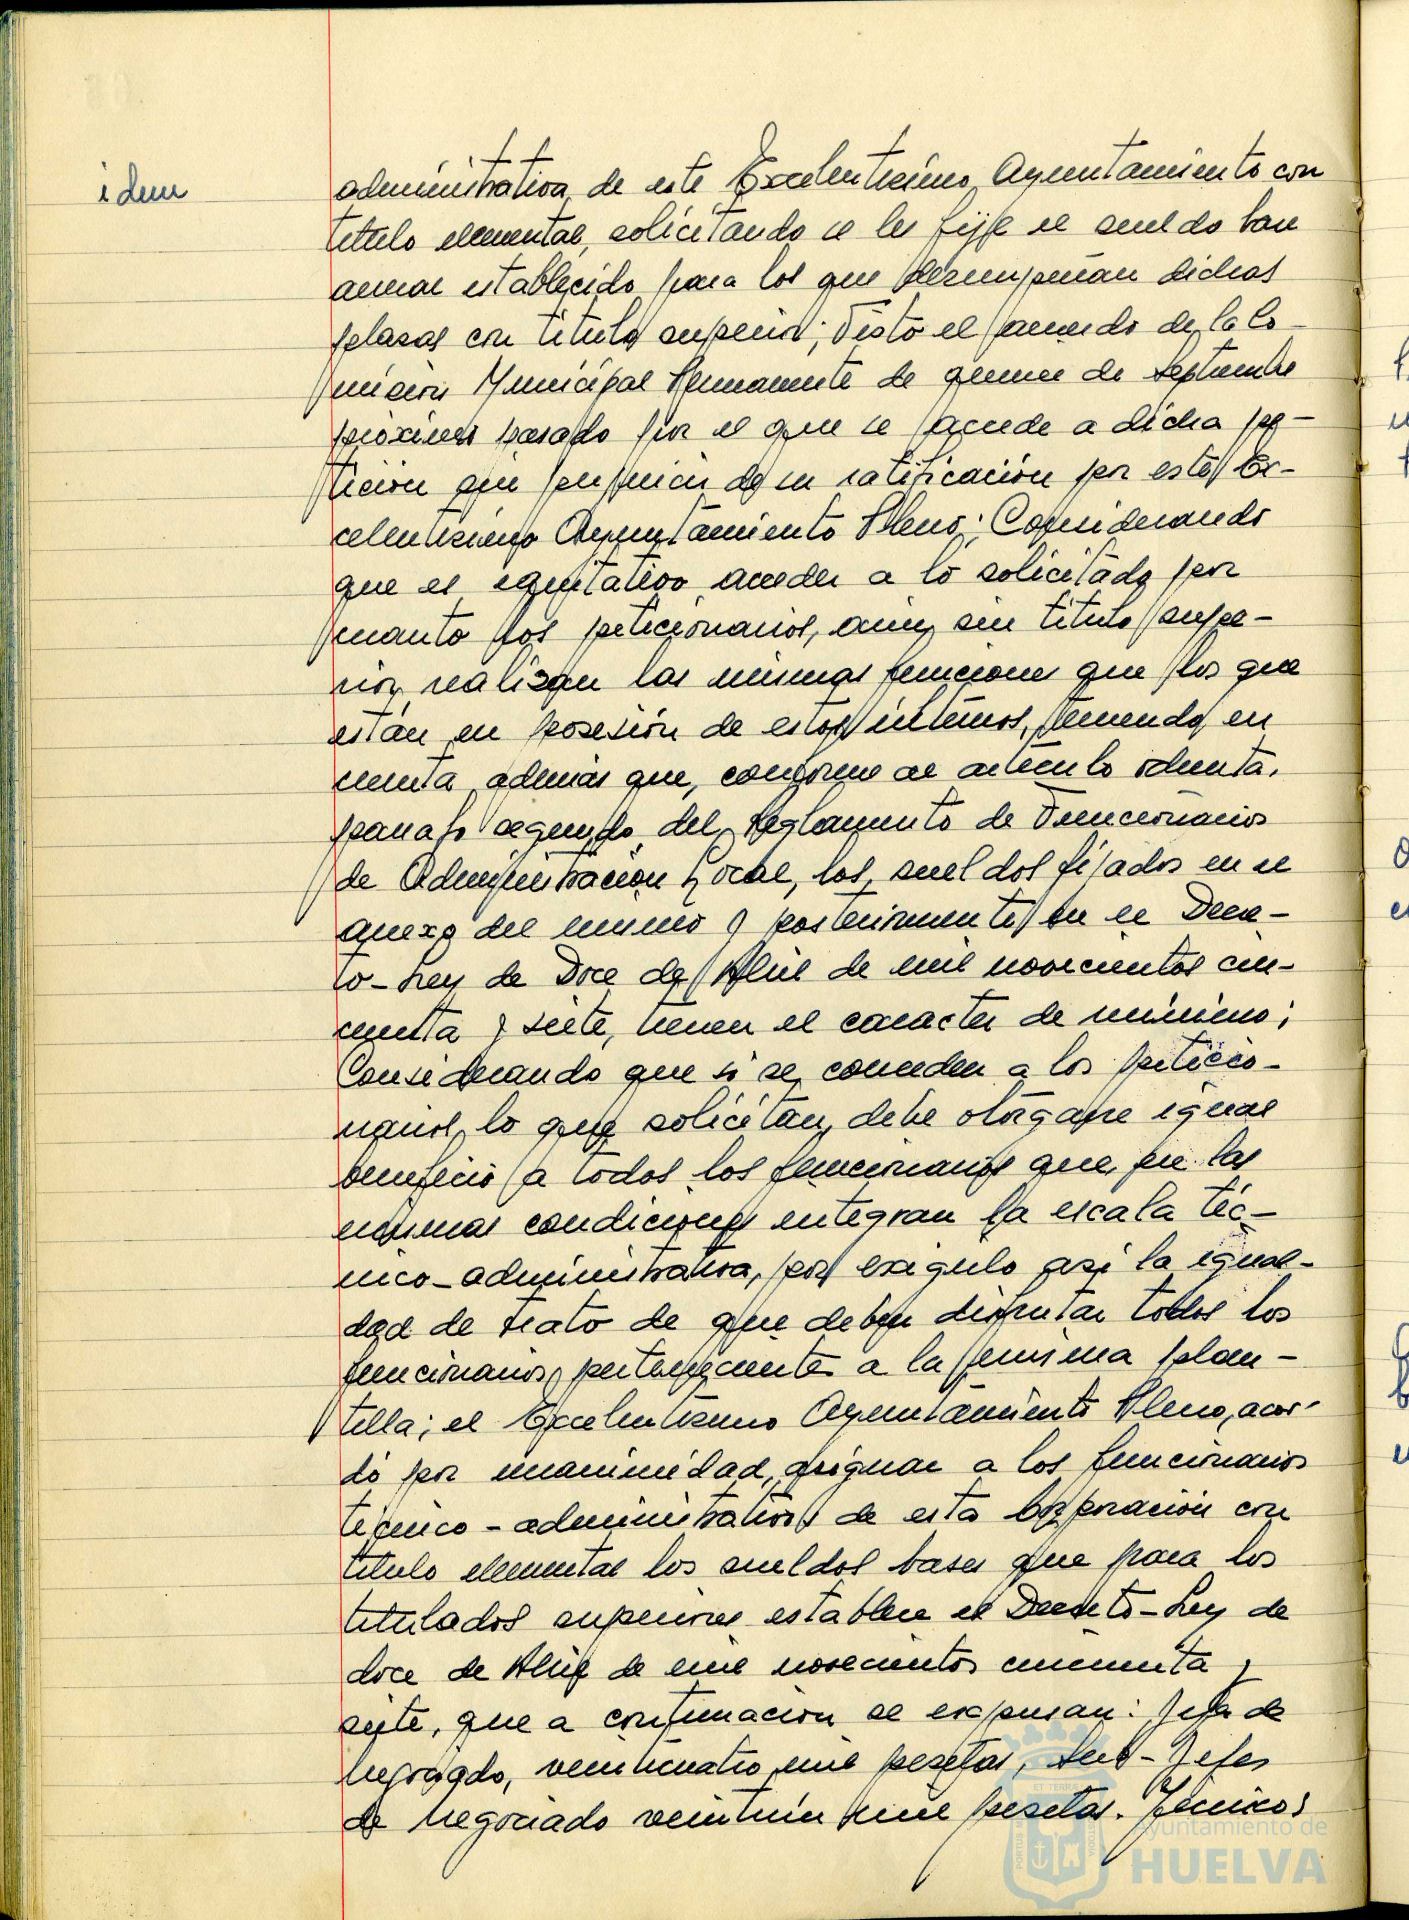 idem
administrativa, de este Excelentísimo Ayuntamiento con
título elemental, solicitando se les fije el sueldo base
anual establecido para los que desempeñan dichas
plazas con título superior; Visto el acuerdo de la Co-
misión Municipal Permanente de quince de Septiembre
próximo pasado por el que se accede a dicha pe-
tición sin perjuicio de su ratificación por este Ex-
celentísimo Ayuntamiento Pleno; Considerando
que es equitativo acceder a lo solicitado por
cuanto los peticionarios, aún sin título supe-
rior, realizan las mismas funciones que los que
están en posesión de estos últimos, teniendo en
cuenta además que, conforme al artículo ochenta,
párrafo segundo del Reglamento de Funcionarios
de Administración Local, los sueldos fijados en el
anexo del mismo y posteriormente en el Decre-
to-Ley de Doce de Abril de mil novecientos cin-
cuenta y siete, tienen el caracter de mínimo;
Considerando que si se conceden a los peticio-
narios lo que solicitan, debe otorgarse igual
beneficio a todos los funcionarios que en las
mismas condiciones integran la escala téc-
nico-administrativa, por exigirlo así la igual-
dad de trato de que deben disfrutar todos los
funcionarios pertenecientes a la misma plan-
tilla; el Excelentísimo Ayuntamiento Pleno, acor-
dó por unanimidad, asignar a los funcionarios
técnico-administrativos de esta Corporación con
título elemental los sueldos bases que para los
titulados superiores establece el Decreto-Ley de
doce de Abril de mil novecientos cincuenta y
siete, que a continuación se expresan: Jefe de
Negociado, veinticuatro mil pesetas, Sub-Jefes
de Negociado veintiún mil pesetas. Técnicos
Ayuntamiento de
HUELVA